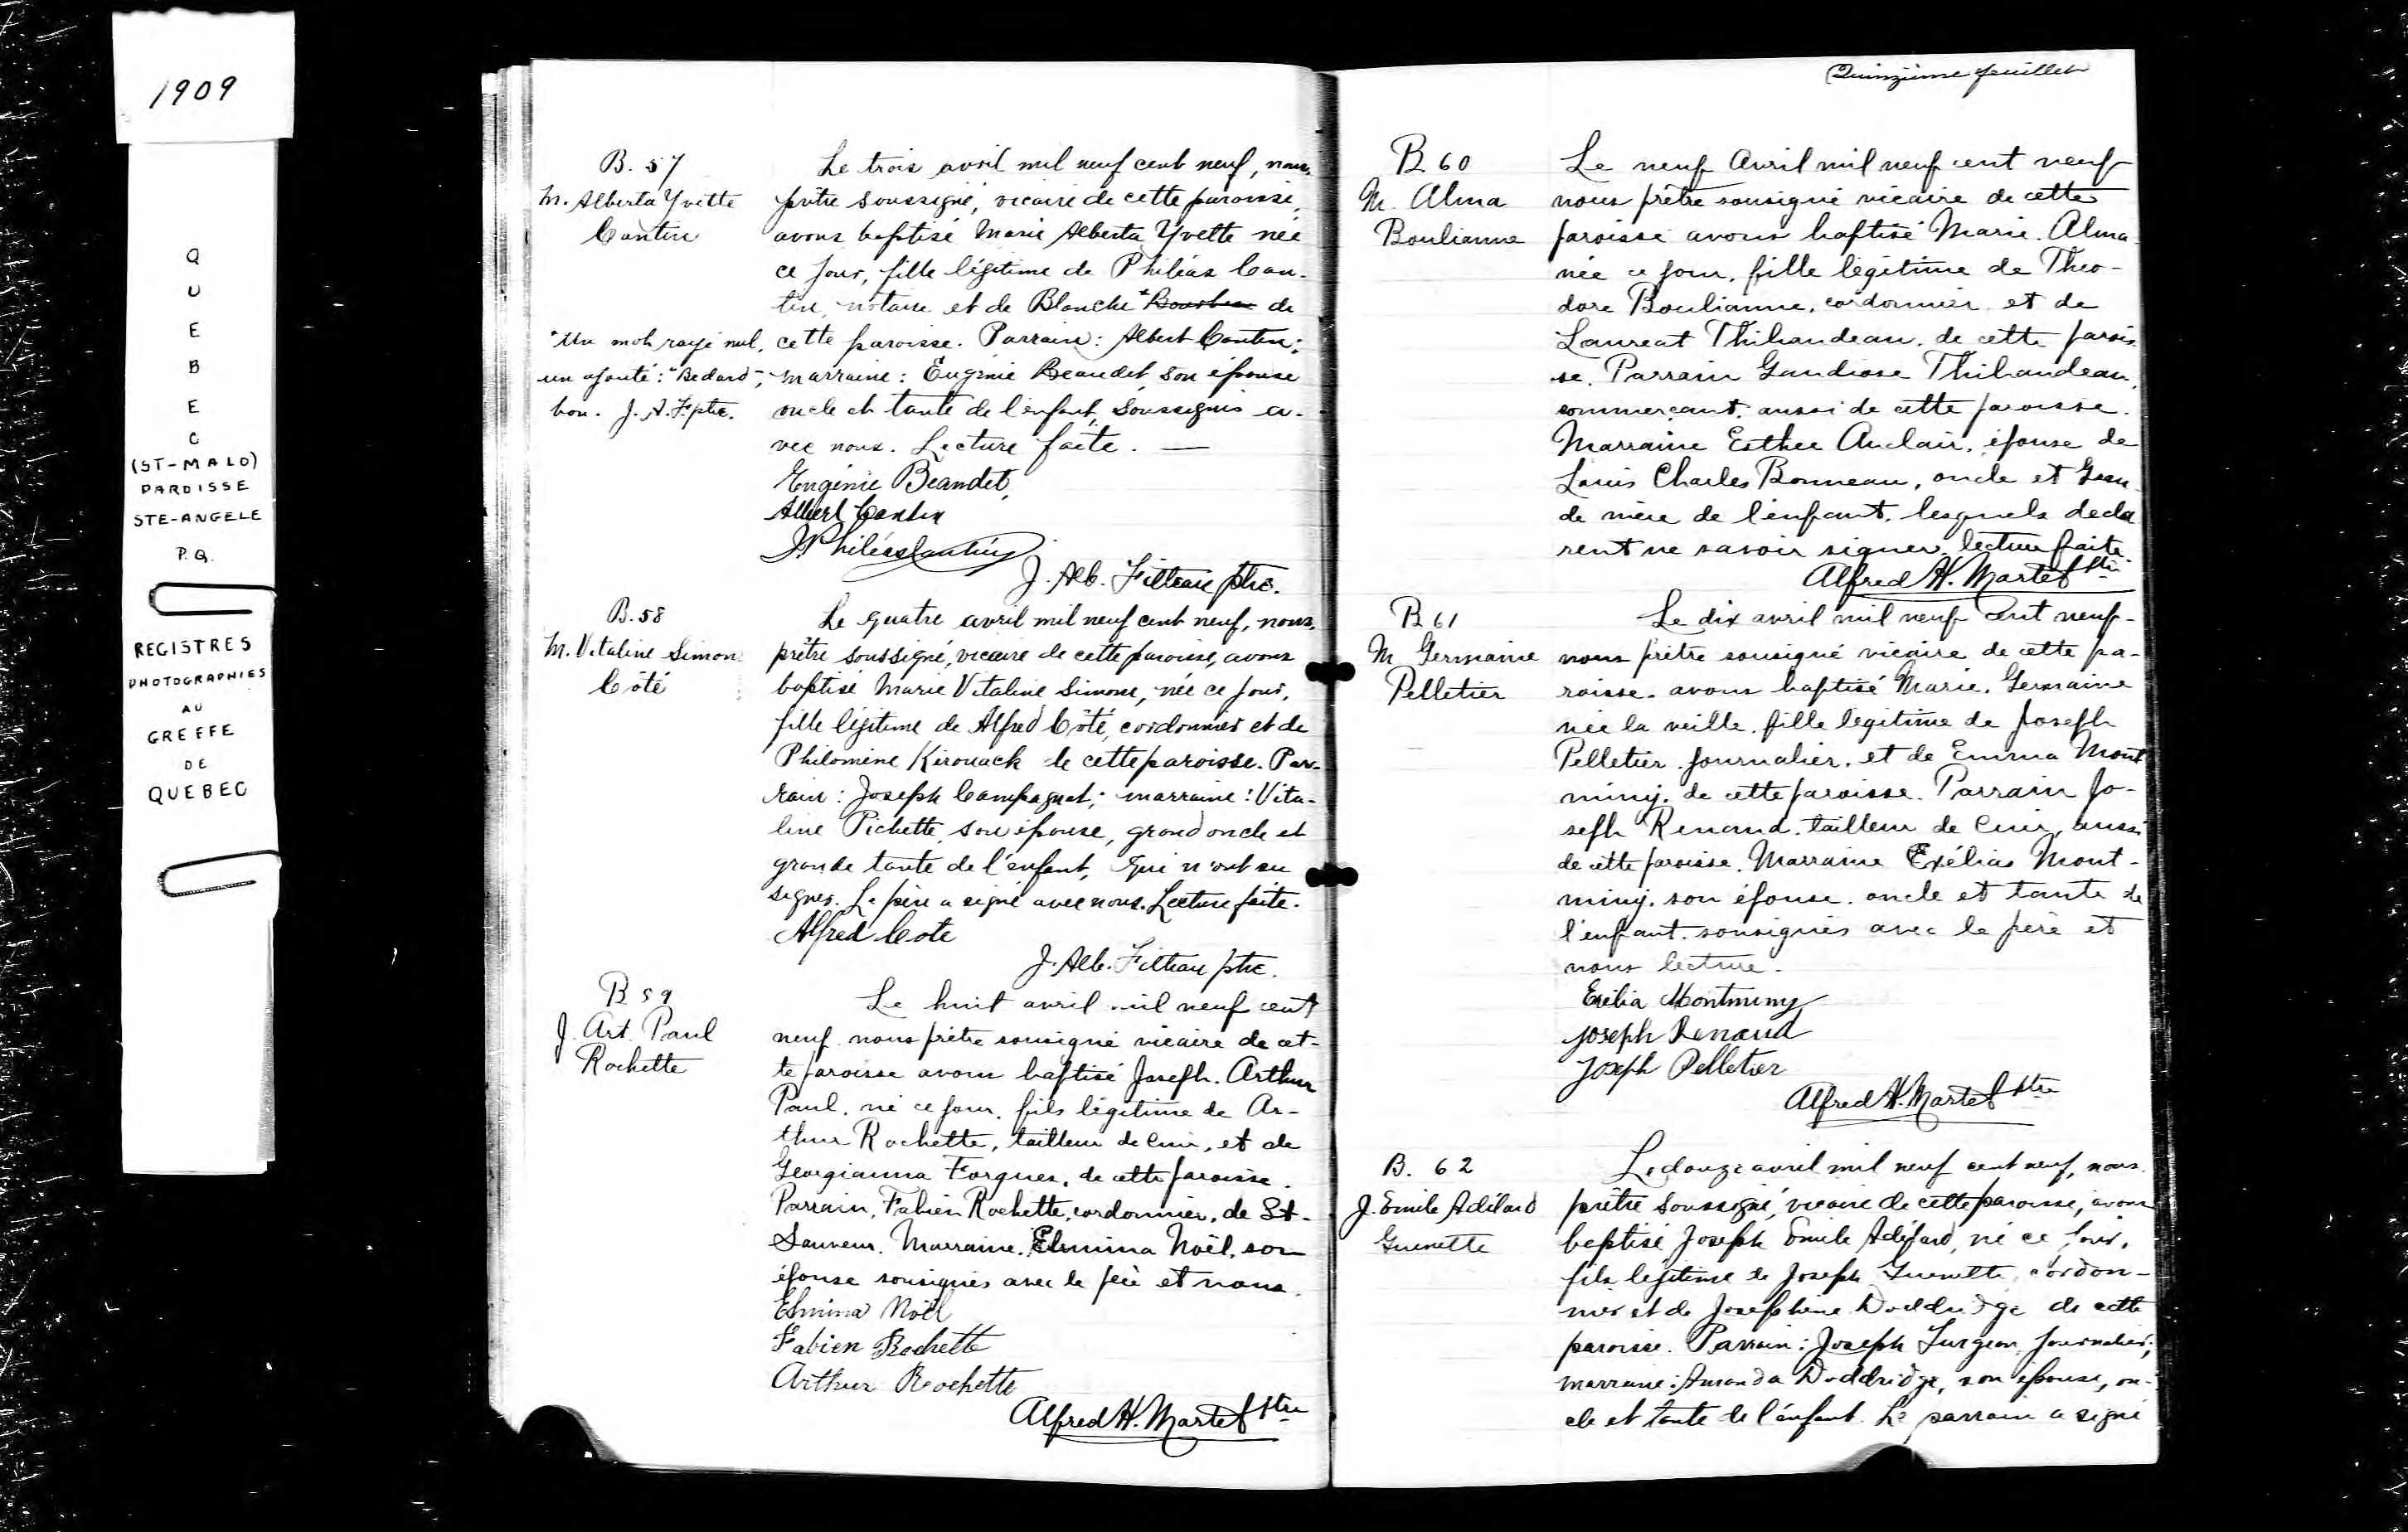 1909
QUEBEC
(ST-MALO)
PAROISSE
STE-ANGELE
P.Q.
REGISTRES
PHOTOGRAPHIES
AU
GREFFE
DE
QUEBEC
B. 57
M. Alberta Yvette
Cantin
Le trois avril mil neuf cent neuf, nous,
prêtre soussigné, vicaire de cette paroisse,
avons baptisé Marie Alberta Yvette née
ce jour, fille légitime de Philéas Can-
tin, notaire et de Blanche * de
cette paroisse. Parrain: Albert Cantin;
marraine: Eugénie Beaudet son épouse
oncle et tante de l'enfant, soussignés a-
vec nous. Lecture faite. —
*Un mot rayé nul,
un ajouté: "Bedard",
bon. J. A. F. ptre.
Eugénie Beaudet,
Albert Cantin
J. Philéas Cantin
J. Alb. Filteau ptre.
B. 58
M. Vitaline Simone
Côté
Le quatre avril mil neuf cent neuf, nous,
prêtre soussigné, vicaire de cette paroisse, avons
baptisé Marie Vitaline Simone, née ce jour,
fille légitime de Alfred Côté, cordonnier et de
Philomène Kirouack de cette paroisse. Par-
rain: Joseph Campagnat; marraine: Vita-
line Pichette, son épouse, grand oncle et
grande tante de l'enfant, qui n'ont su
signer. Le père a signé avec nous. Lecture faite.
Alfred Cote
J. Alb. Filteau ptre.
B 59
J. Art. Paul
Rochette
Le huit avril mil neuf cent
neuf nous prêtre sousigné vicaire de cet-
te paroisse avons baptisé Joseph. Arthur
Paul. né ce jour. fils légitime de Ar-
thur Rochette, tailleur de cuir, et de
Georgianna Forgues, de cette paroisse.
Parrain, Fabien Rochette, cordonnier, de St-
Sauveur. Marraine. Elmina Noël, son
épouse sousignés avec le père et nous.
Elmina Noël
Fabien Rochette
Arthur Rochette
Alfred H. Martel Ptre
Quinzième feuillet
B 60
M. Alma
Boulianne
Le neuf Avril mil neuf cent neuf
nous prêtre sousigné vicaire de cette
paroisse avons baptisé Marie. Alma
née ce jour, fille légitime de Théo-
dore Boulianne, cordonnier et de
Laureat Thibaudeau. de cette parois
se. Parrain Gaudiose Thibaudeau,
commerçant. aussi de cette paroisse.
Marraine Esther Auclair, épouse de
Louis Charles Bonneau, oncle et Gran
de mère de l'enfant. lesquels décla
rent ne savoir signer. lecture faite.
Alfred H. Martel Ptre
B 61
M Germaine
Pelletier
Le dix avril mil neuf cent neuf-
nous prêtre sousigné vicaire de cette pa-
roisse. avons baptisé Marie. Germaine
née la veille. fille légitime de Joseph
Pelletier journalier. et de Emma Mont
miny. de cette paroisse. Parrain Jo-
seph Renaud. tailleur de cuir, aussi
de cette paroisse. Marraine Exélias Mont-
miny. son épouse. oncle et tante de
l'enfant. sousignés avec le père et
nous lecture.
Exilia Montminy
Joseph Renaud
Joseph Pelletier
Alfred H. Martel Ptre
B. 62
J. Emile Adélard
Guenette
Le douze avril mil neuf cent neuf, nous
prêtre soussigné, vicaire de cette paroisse, avons
baptisé Joseph Emile Adélard, né ce jour,
fils légitime de Joseph Guenette, cordon-
nier et de Josephine Doddridge de cette
paroisse. Parrain: Joseph Turgeon, journalier;
marraine: Amanda Doddridge, son épouse, on-
cle et tante de l'enfant. Le parrain a signé